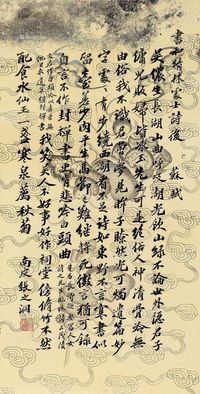 書和靖林處士詩後 蘇軾
吳儂生長湖山曲呼吸湖光飲山綠不論世外隱君子
傭兒販婦皆冰玉先生可是絕俗人神清骨冷無
由俗我不識君曾夢見眸子瞭然光可燭遺篇妙
字處處有步繞西湖看不足詩如東野不言寒書似
留臺差少肉平生高節已難繼將死微言猶可錄
自言不作封禪書更肯悲吟白頭曲
我笑吳人不好事好作祠堂傍修竹不然
配食水仙王一盞寒泉薦秋菊 南皮張之洞